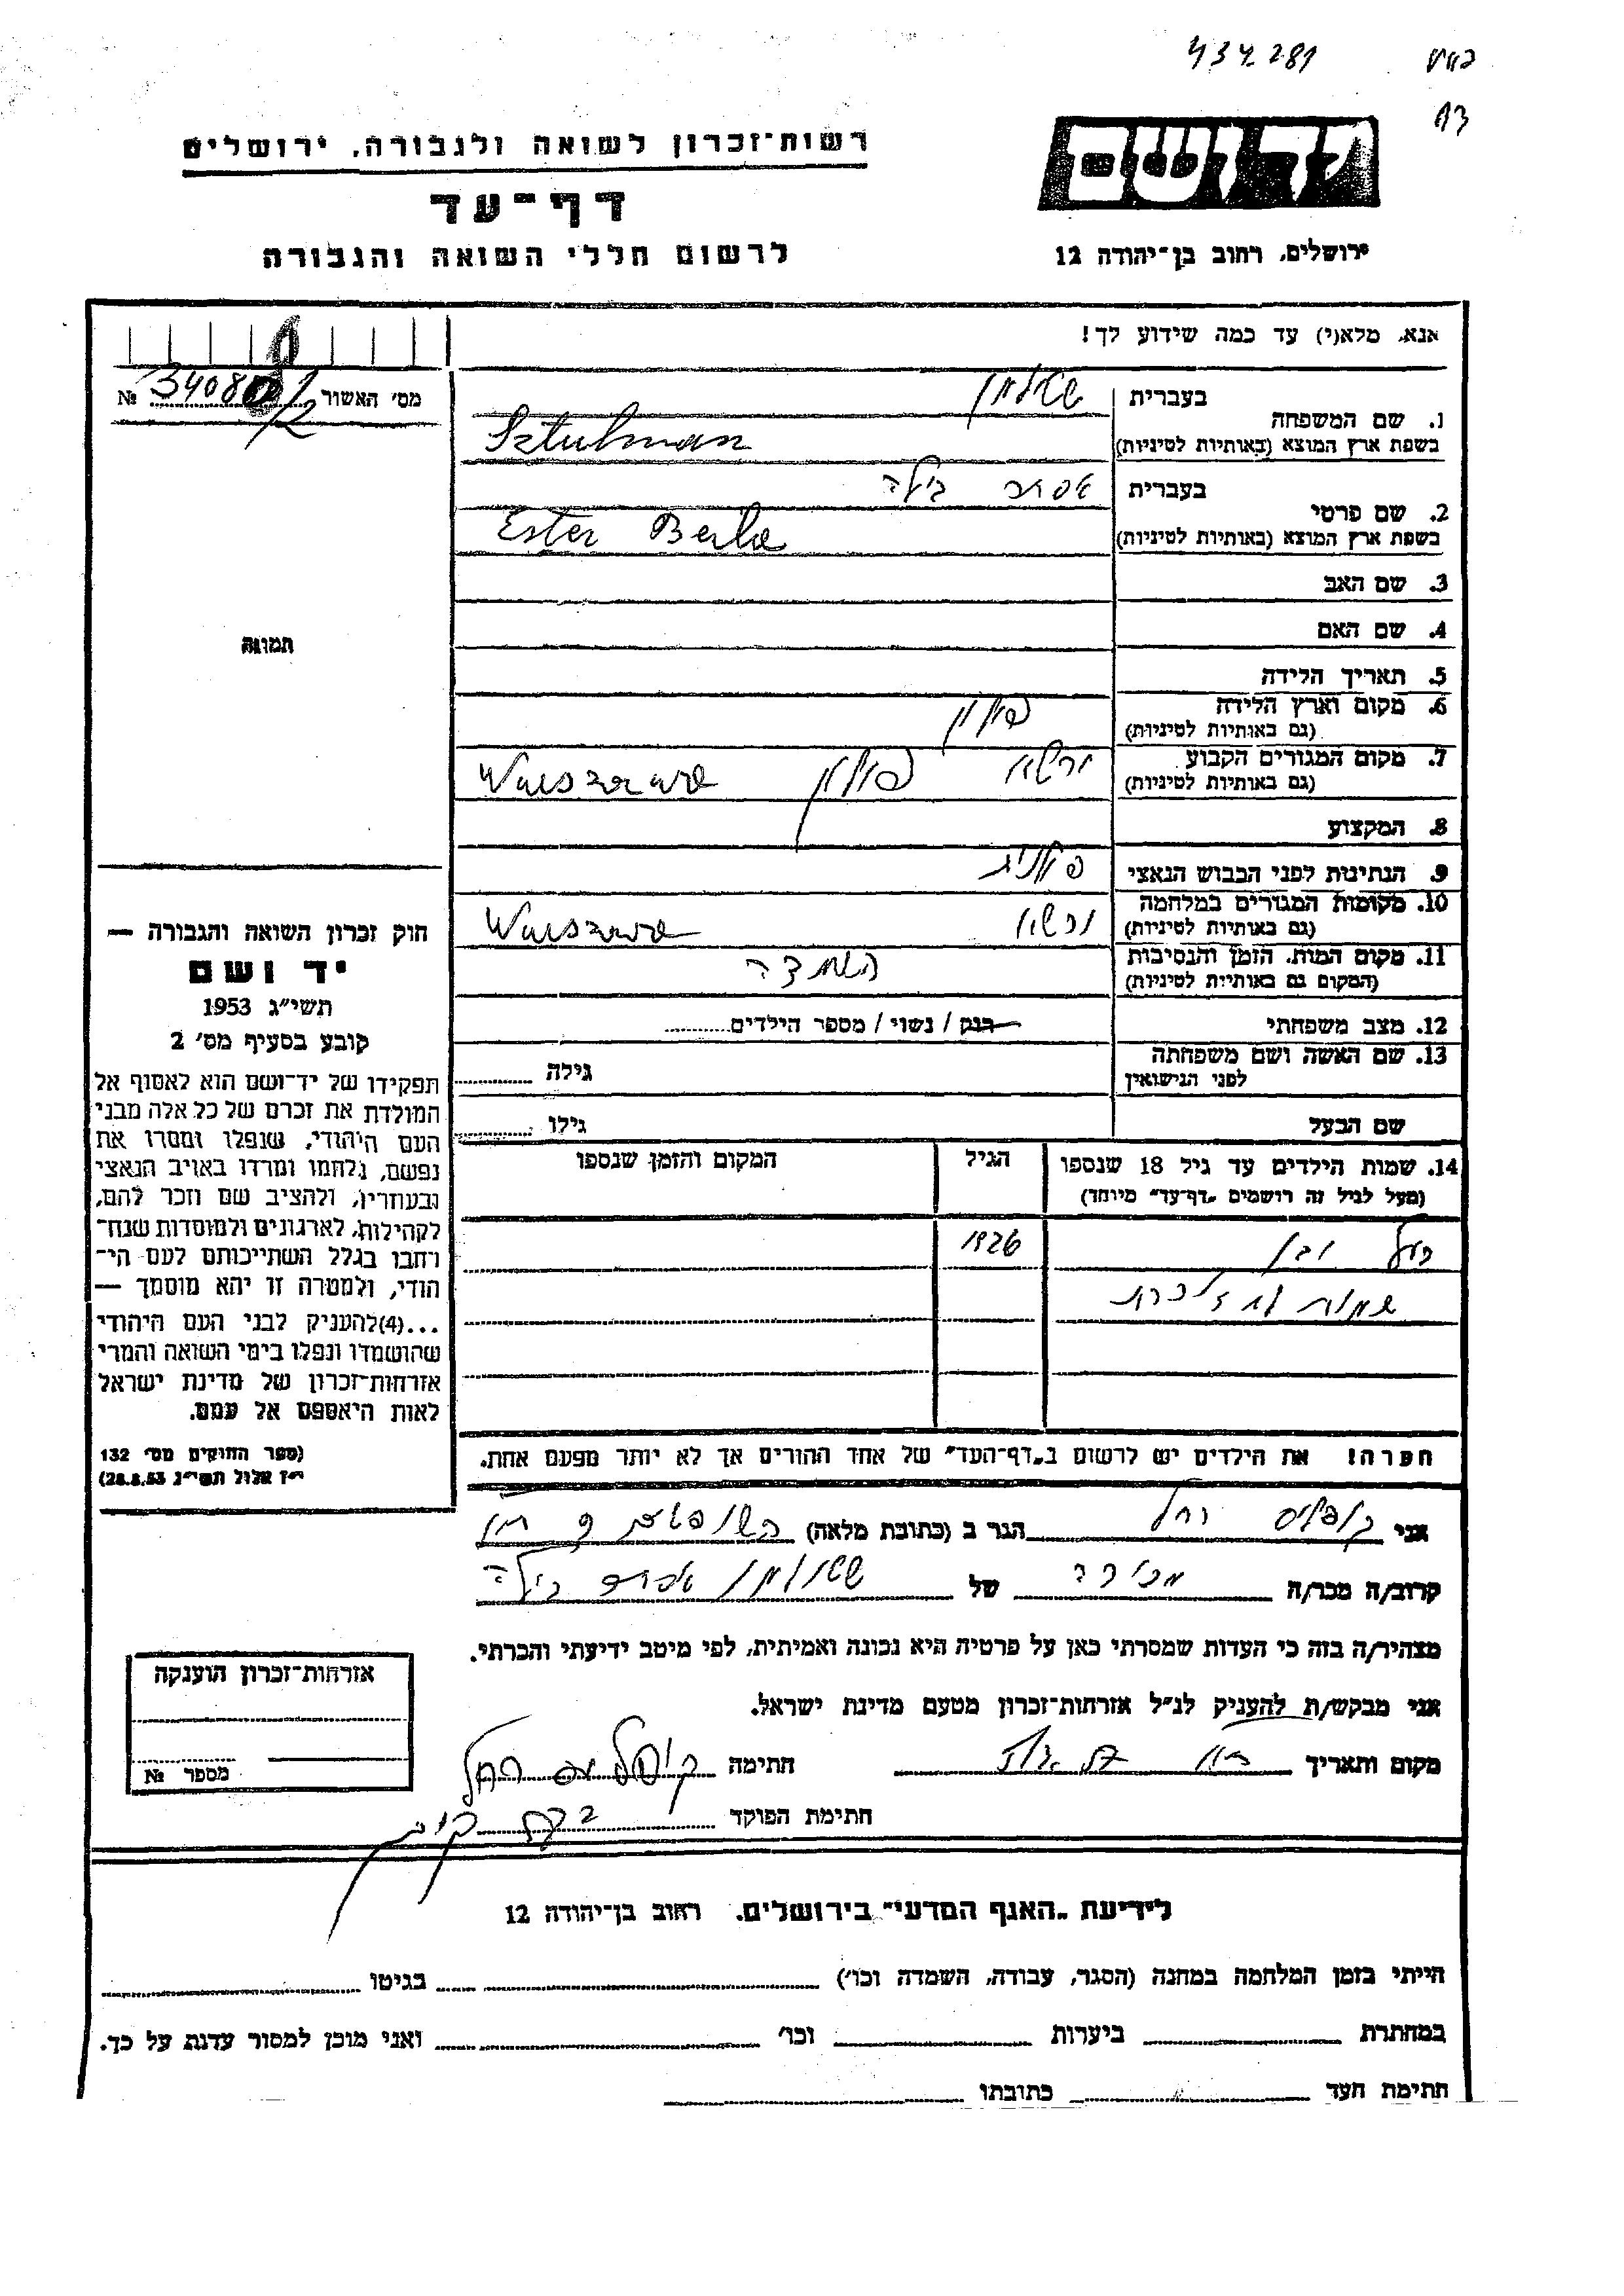 434.281
13
רשות־זכרון לשואה ולגבורה, ירושלים
דף־עד
לרשום חללי השואה והגבורה
יד ושם
ירושלים, רחוב בן־יהודה 12
אנא, מלא(י) עד כמה שידוע לך!
מס׳ האשור № 3408
1. שם המשפחה
בעברית שטולמן
בשפת ארץ המוצא (באותיות לטיניות) Sztulman
2. שם פרטי
בעברית אסתר בילה
בשפת ארץ המוצא (באותיות לטיניות) Ester Berla
3. שם האב
4. שם האם
5. תאריך הלידה
6. מקום וארץ הלידה פולין
(גם באותיות לטיניות)
7. מקום המגורים הקבוע ורשא פולין Warszawa
(גם באותיות לטיניות)
8. המקצוע
9. הנתינות לפני הכבוש הנאצי פולנית
10. מקומות המגורים במלחמה ורשא Warszawa
(גם באותיות לטיניות)
11. מקום המות, הזמן והנסיבות השמדה
(המקום גם באותיות לטיניות)
12. מצב משפחתי רווק / נשוי / מספר הילדים
13. שם האשה ושם משפחתה
לפני הנישואין גילה
שם הבעל גילו
14. שמות הילדים עד גיל 18 שנספו הגיל המקום והזמן שנספו
(מעל לגיל זה רושמים „דף־עד” מיוחד)
בעל ובן 1926
שמות לא זוכרת
הערה! את הילדים יש לרשום ב„דף־העד” של אחד ההורים אך לא יותר מפעם אחת.
תמונה
חוק זכרון השואה והגבורה —
יד ושם
תשי״ג 1953
קובע בסעיף מס׳ 2
תפקידו של יד־ושם הוא לאסוף אל
המולדת את זכרם של כל אלה מבני
העם היהודי, שנפלו ומסרו את
נפשם, נלחמו ומרדו באויב הנאצי
ובעוזריו, ולהציב שם וזכר להם,
לקהילות, לארגונים ולמוסדות שנח־
רחבו בגלל השתייכותם לעם הי־
הודי, ולמטרה זו יהא מוסמך —
...(4)להעניק לבני העם היהודי
שהושמדו ונפלו בימי השואה והמרי
אזרחות־זכרון של מדינת ישראל
לאות היאספם אל עמם.
(ספר החוקים מס׳ 132
י״ז אלול תשי״ג 28.8.53)
אני רחל הגר ב (כתובת מלאה) השופטים
קרוב/ה מכר/ה מכירה של שטולמן אסתר בילה
מצהיר/ה בזה כי העדות שמסרתי כאן על פרטיה היא נכונה ואמיתית, לפי מיטב ידיעתי והכרתי.
אני מבקש/ת להעניק לנ״ל אזרחות־זכרון מטעם מדינת ישראל.
מקום ותאריך חתימה רחל
חתימת הפוקד
אזרחות־זכרון הוענקה
מספר №
לידיעת „האגף המדעי” בירושלים, רחוב בן־יהודה 12
הייתי בזמן המלחמה במחנה (הסגר, עבודה, השמדה וכו׳) בגיטו
במחתרת ביערות וכו׳ ואני מוכן למסור עדות על כך.
חתימת העד כתובתו